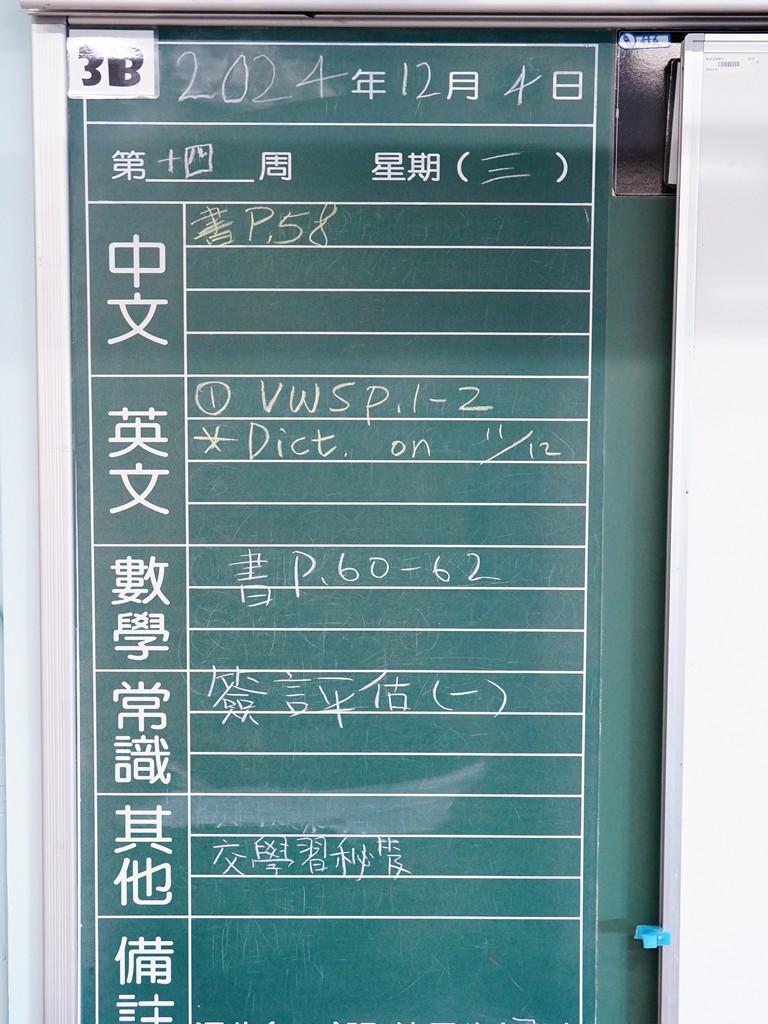 3B
2024年12月4日
第十四周 星期(三)
中文
書P.58
英文
① VWS p.1-2
* Dict. on 11/12
數學
書P.60-62
常識
簽言評估(一)
其他
交學習秘
備註